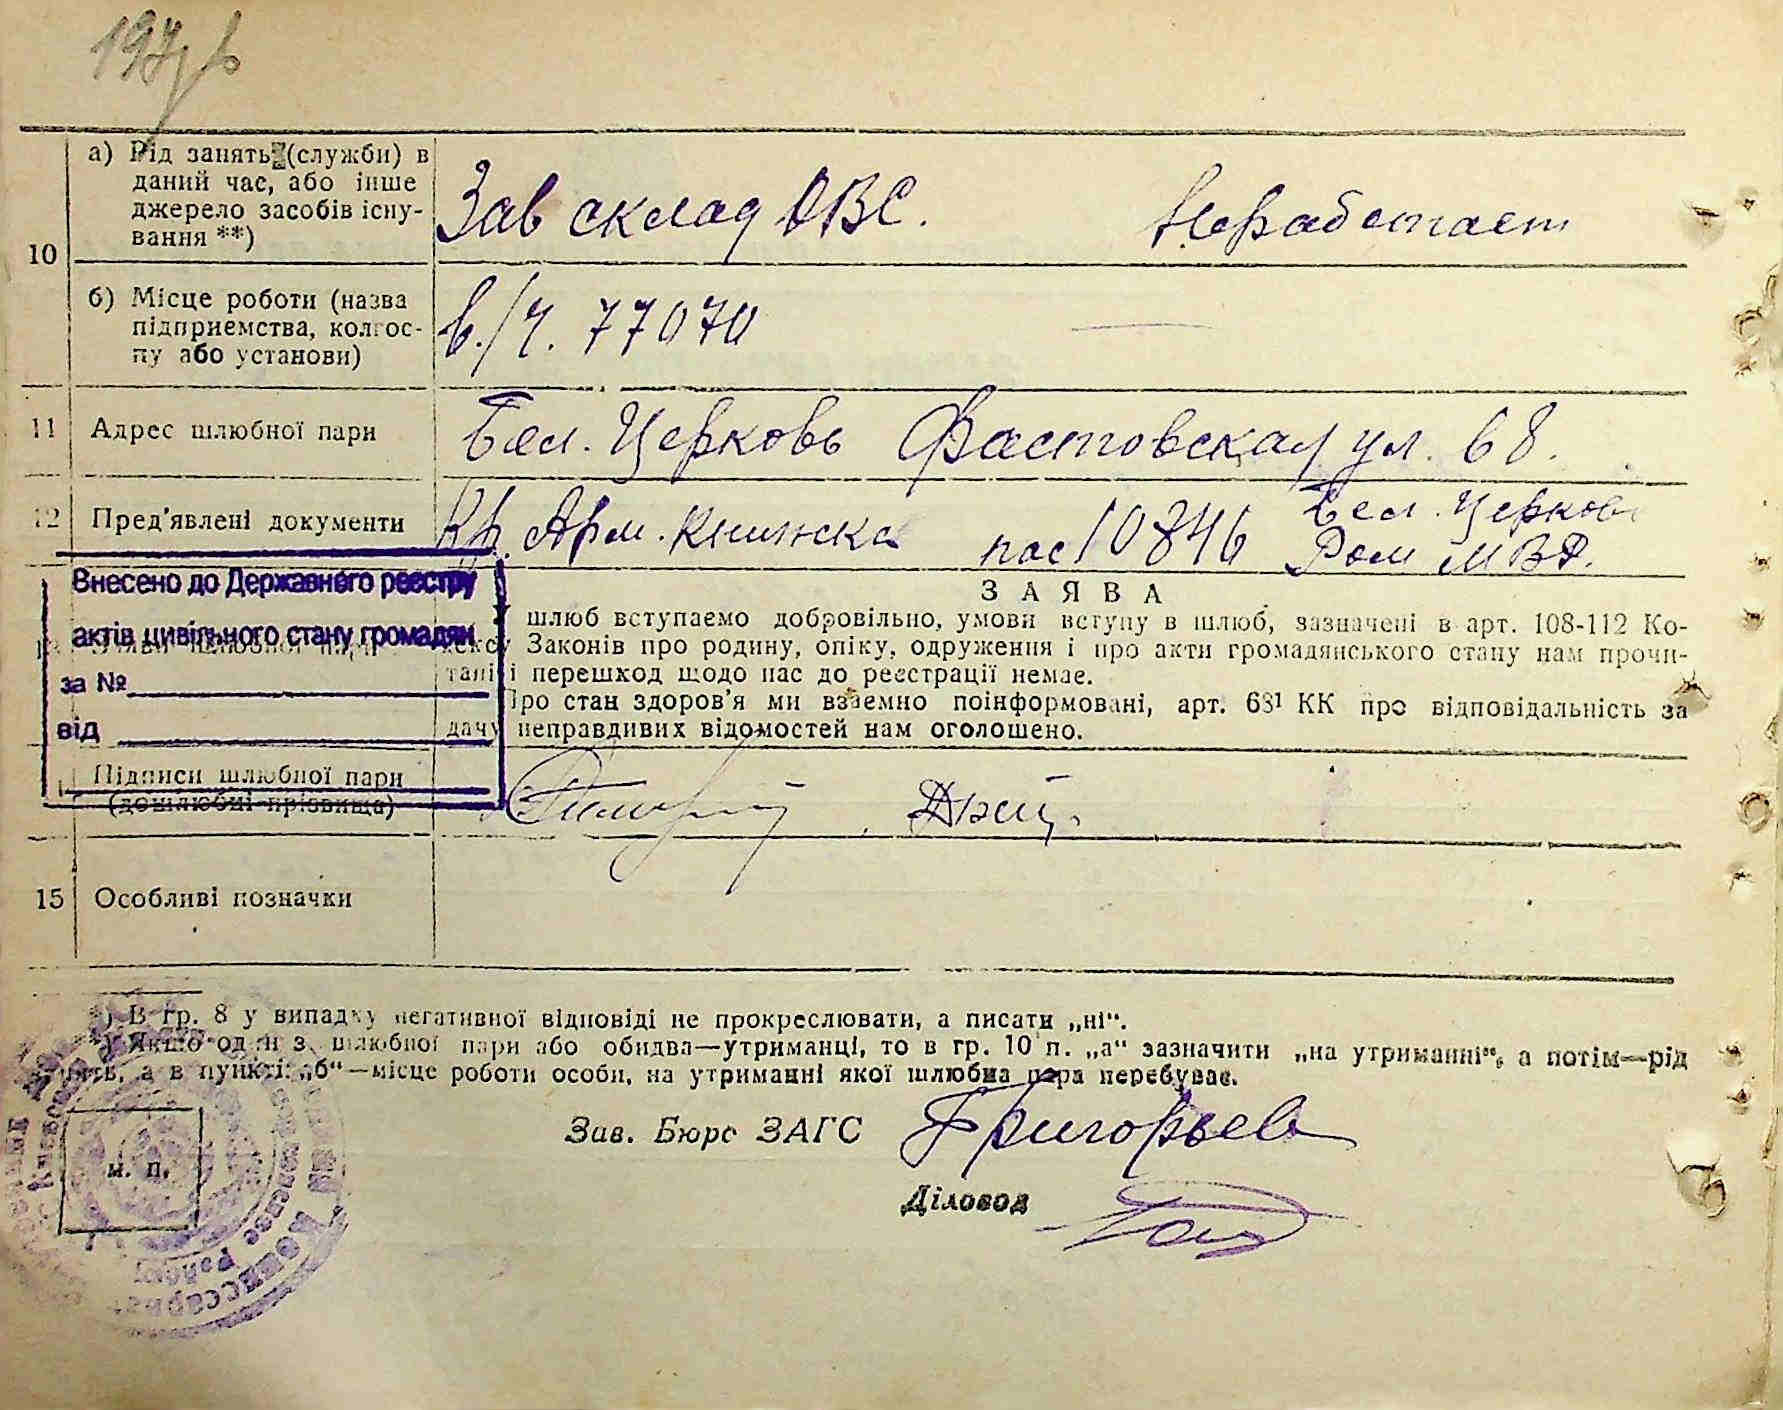 10
а) Рід занять (служби) в
даний час, або інше
джерело засобів існу-
вання **)
Зав склад ОВС.
Неработает
б) Місце роботи (назва
підприемства, колгос-
пу або установи)
в./ч. 77070
11
Адрес шлюбної пари
Бел. Церковь Фастовская ул. 68.
12
Пред'явлені документи
Кр. Арм. книжка
пас 10846
Бел. Церков
Ром МВД.
Внесено до Державного реестру
актів цивільного стану громадян
за №
від
ЗАЯВА
шлюб вступаемо добровільно, умови вступу в шлюб, зазначені в арт. 108-112 Ко-
ексу Законів про родину, опіку, одруження і про акти громадянського стану нам прочи-
тані і перешкод щодо нас до реєстрації немає.
Про стан здоров'я ми взаемно поінформовані, арт. 68¹ КК про відповідальність за
дачу неправдивих відомостей нам оголошено.
Підписи шлюбної пари
(дошлюбні прізвища)
15
Особливі позначки
*) В гр. 8 у випадку негативної відповіді не прокреслювати, а писати „ні“.
**) Якщо один з шлюбної пари або обидва—утриманці, то в гр. 10 п. „а“ зазначити „на утриманні“, а потім—рід
занять, а в пункті „б“—місце роботи особи, на утриманні якої шлюбна пара перебуває.
Зав. Бюро ЗАГС
Григорьев
м. п.
Діловод